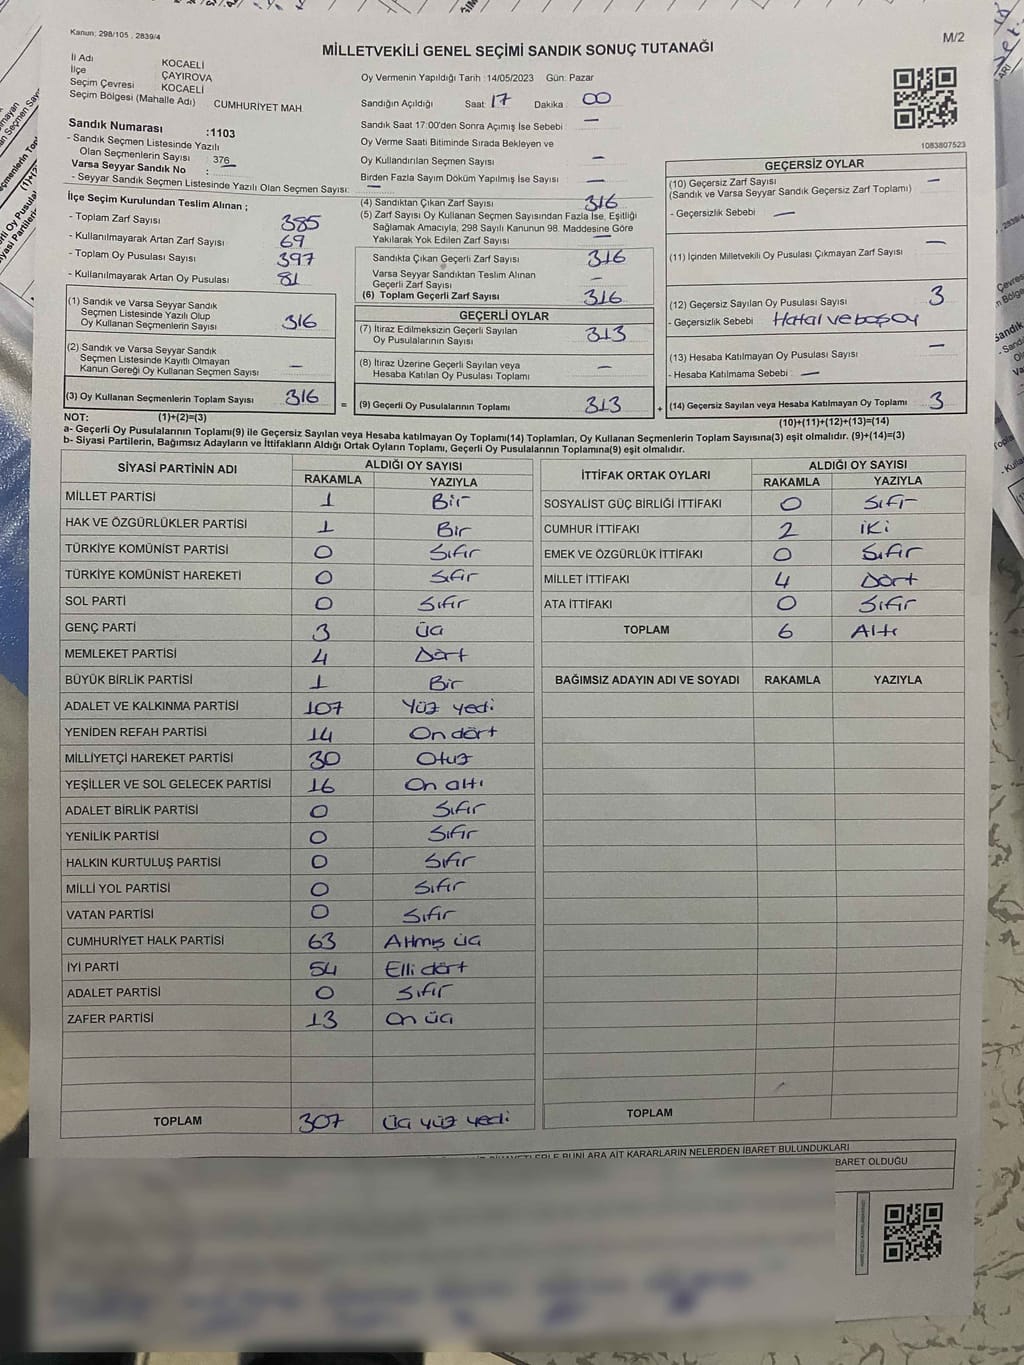 Kanun: 298/105 , 2839/4
M/2
MİLLETVEKİLİ GENEL SEÇİMİ SANDIK SONUÇ TUTANAĞI
İl Adı KOCAELİ
İlçe ÇAYIROVA
Seçim Çevresi KOCAELİ
Seçim Bölgesi (Mahalle Adı) CUMHURİYET MAH
Oy Vermenin Yapıldığı Tarih :14/05/2023 Gün: Pazar
Sandığın Açıldığı Saat 17 Dakika 00
Sandık Saat 17:00'den Sonra Açmış İse Sebebi : —
Oy Verme Saati Bitiminde Sırada Bekleyen ve
Oy Kullandırılan Seçmen Sayısı —
Birden Fazla Sayım Döküm Yapılmış İse Sayısı —
1083807523
Sandık Numarası :1103
- Sandık Seçmen Listesinde Yazılı
Olan Seçmenlerin Sayısı : 376
Varsa Seyyar Sandık No :
- Seyyar Sandık Seçmen Listesinde Yazılı Olan Seçmen Sayısı: —
İlçe Seçim Kurulundan Teslim Alınan ;
- Toplam Zarf Sayısı 385
- Kullanılmayarak Artan Zarf Sayısı 69
- Toplam Oy Pusulası Sayısı 397
- Kullanılmayarak Artan Oy Pusulası 81
(1) Sandık ve Varsa Seyyar Sandık
Seçmen Listesinde Yazılı Olup
Oy Kullanan Seçmenlerin Sayısı 316
(2) Sandık ve Varsa Seyyar Sandık
Seçmen Listesinde Kayıtlı Olmayan
Kanun Gereği Oy Kullanan Seçmen Sayısı —
(3) Oy Kullanan Seçmenlerin Toplam Sayısı 316
=
(4) Sandıktan Çıkan Zarf Sayısı 316
(5) Zarf Sayısı Oy Kullanan Seçmen Sayısından Fazla İse, Eşitliği
Sağlamak Amacıyla; 298 Sayılı Kanunun 98. Maddesine Göre
Yakılarak Yok Edilen Zarf Sayısı —
Sandıkta Çıkan Geçerli Zarf Sayısı 316
Varsa Seyyar Sandıktan Teslim Alınan
Geçerli Zarf Sayısı
(6) Toplam Geçerli Zarf Sayısı 316
GEÇERLİ OYLAR
(7) İtiraz Edilmeksizin Geçerli Sayılan
Oy Pusulalarının Sayısı 313
(8) İtiraz Üzerine Geçerli Sayılan veya
Hesaba Katılan Oy Pusulası Toplamı —
(9) Geçerli Oy Pusulalarının Toplamı 313
+
GEÇERSİZ OYLAR
(10) Geçersiz Zarf Sayısı —
(Sandık ve Varsa Seyyar Sandık Geçersiz Zarf Toplamı)
- Geçersizlik Sebebi —
(11) İçinden Milletvekili Oy Pusulası Çıkmayan Zarf Sayısı —
(12) Geçersiz Sayılan Oy Pusulası Sayısı 3
- Geçersizlik Sebebi Hatalı ve boş oy
(13) Hesaba Katılmayan Oy Pusulası Sayısı —
- Hesaba Katılmama Sebebi —
(14) Geçersiz Sayılan veya Hesaba Katılmayan Oy Toplamı 3
NOT: (1)+(2)=(3)
(10)+(11)+(12)+(13)=(14)
a- Geçerli Oy Pusulalarının Toplamı(9) ile Geçersiz Sayılan veya Hesaba katılmayan Oy Toplamı(14) Toplamları, Oy Kullanan Seçmenlerin Toplam Sayısına(3) eşit olmalıdır. (9)+(14)=(3)
b- Siyasi Partilerin, Bağımsız Adayların ve İttifakların Aldığı Ortak Oyların Toplamı, Geçerli Oy Pusulalarının Toplamına(9) eşit olmalıdır.
SİYASİ PARTİNİN ADI ALDIĞI OY SAYISI
RAKAMLA YAZIYLA
MİLLET PARTİSİ 1 Bir
HAK VE ÖZGÜRLÜKLER PARTİSİ 1 Bir
TÜRKİYE KOMÜNİST PARTİSİ 0 Sıfır
TÜRKİYE KOMÜNİST HAREKETİ 0 Sıfır
SOL PARTİ 0 Sıfır
GENÇ PARTİ 3 Üç
MEMLEKET PARTİSİ 4 Dört
BÜYÜK BİRLİK PARTİSİ 1 Bir
ADALET VE KALKINMA PARTİSİ 107 Yüz yedi
YENİDEN REFAH PARTİSİ 14 On dört
MİLLİYETÇİ HAREKET PARTİSİ 30 Otuz
YEŞİLLER VE SOL GELECEK PARTİSİ 16 On altı
ADALET BİRLİK PARTİSİ 0 Sıfır
YENİLİK PARTİSİ 0 Sıfır
HALKIN KURTULUŞ PARTİSİ 0 Sıfır
MİLLİ YOL PARTİSİ 0 Sıfır
VATAN PARTİSİ 0 Sıfır
CUMHURİYET HALK PARTİSİ 63 Altmış üç
İYİ PARTİ 54 Elli dört
ADALET PARTİSİ 0 Sıfır
ZAFER PARTİSİ 13 On üç
TOPLAM 307 Üç yüz yedi
İTTİFAK ORTAK OYLARI ALDIĞI OY SAYISI
RAKAMLA YAZIYLA
SOSYALİST GÜÇ BİRLİĞİ İTTİFAKI 0 Sıfır
CUMHUR İTTİFAKI 2 İki
EMEK VE ÖZGÜRLÜK İTTİFAKI 0 Sıfır
MİLLET İTTİFAKI 4 Dört
ATA İTTİFAKI 0 Sıfır
TOPLAM 6 Altı
BAĞIMSIZ ADAYIN ADI VE SOYADI RAKAMLA YAZIYLA
TOPLAM
BUNLARA AİT KARARLARIN NELERDEN İBARET BULUNDUKLARI
İBARET OLDUĞU